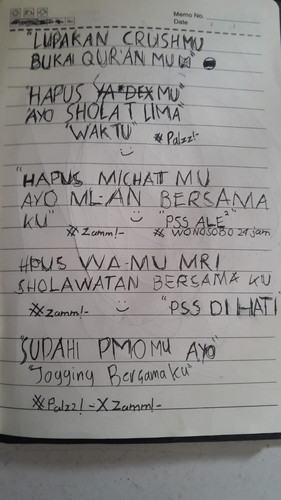 Memo No.
Date
"LUPAKAN CRUSHMU
BUKAI QUR'AN MU
"HAPUS YA*DEXMU"
AYO SHOLAT LIMA
"WAKTU" #Palzz!-
"HAPUS MICHAT MU
AYO ML-AN BERSAMA
KU" "PSS ALE²"
#Zamm!- # WONOSOBO 24 jam
HPUS WA-MU MRI
SHOLAWATAN BERSAMA KU
#Zamm!- "PSS DI HATI
"SUDAHI PMOMU AYO
"Jogging BergamaKu"
#Palzz!-XZamm!-